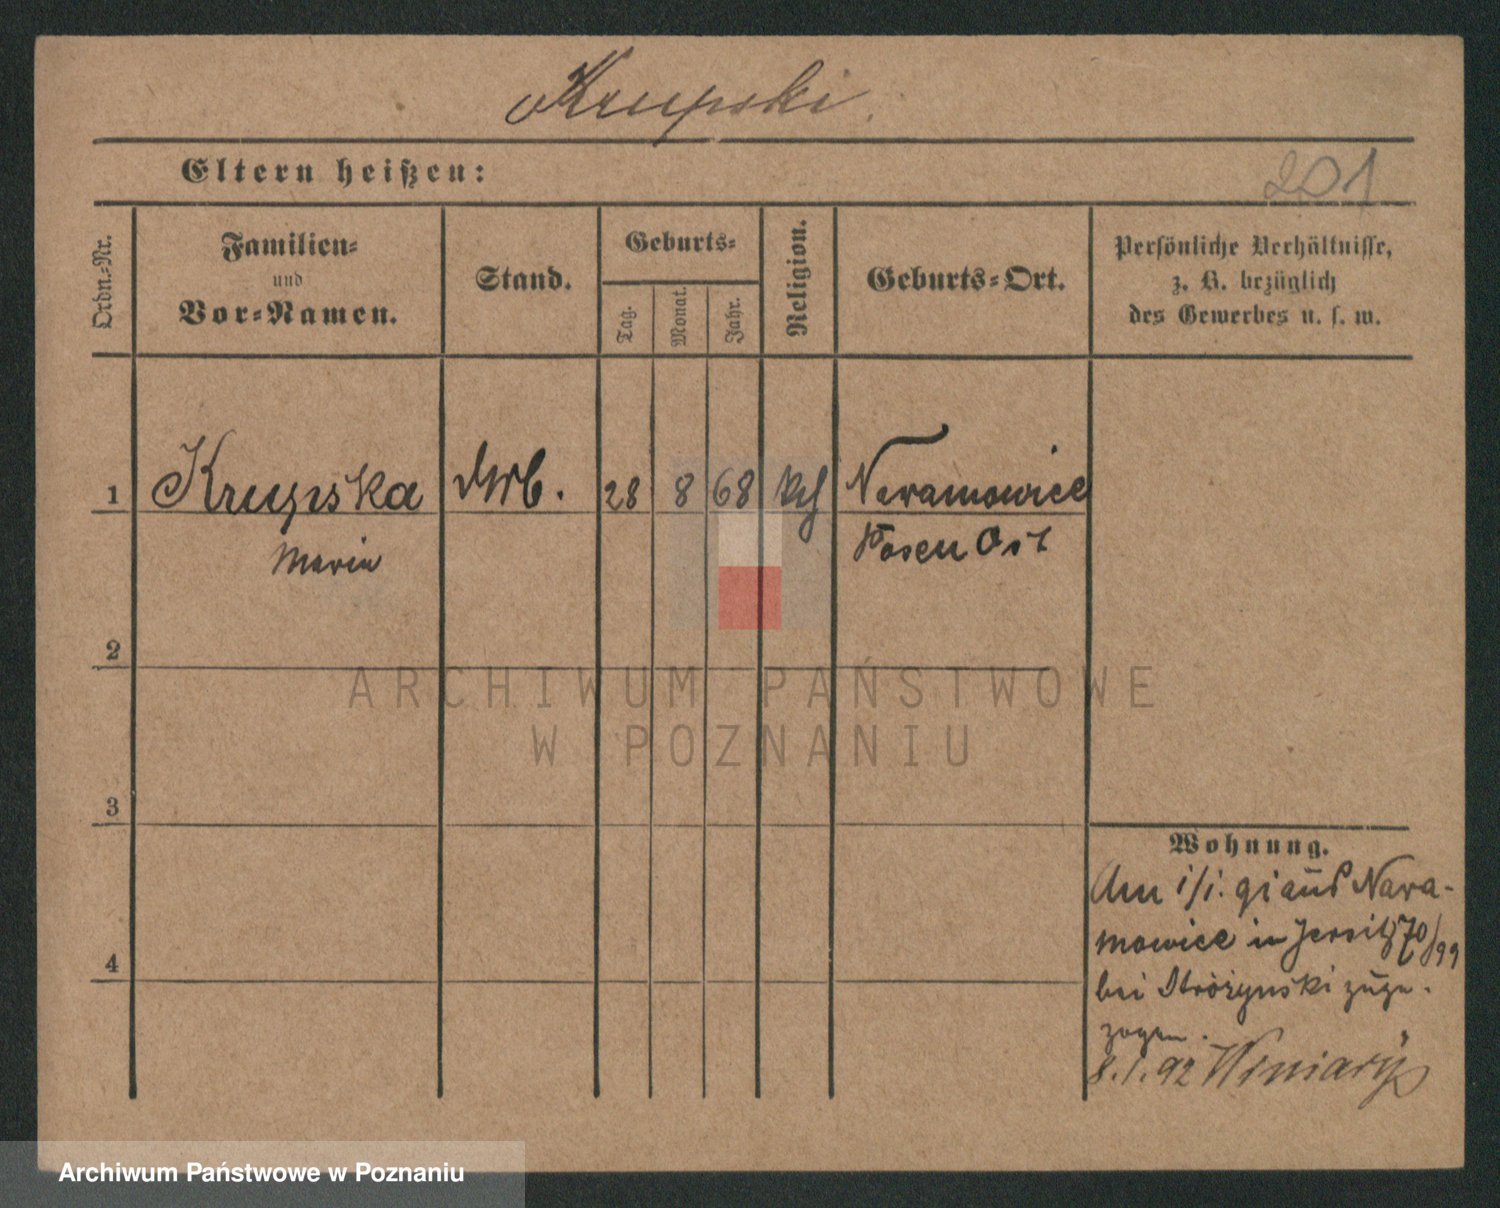 Krupski.
Eltern heißen:
201
Ordn.-Nr.
Familien-
und
Vor-Namen.
Stand.
Geburts-
Tag.
Monat.
Jahr.
Religion.
Geburts-Ort.
Persönliche Verhältnisse,
z. B. bezüglich
des Gewerbes u. s. w.
1
Krupska
Arb.
28
8
68
Naramowice
Maria
Posen Ost
2
3
4
Wohnung.
Am 1/1. aus Nara-
mowice in Jersitz 70/99
bei Strózynski zuge-
zogen.
8.1.92 Winiary
ARCHIWUM PAŃSTWOWE
W POZNANIU
Archiwum Państwowe w Poznaniu